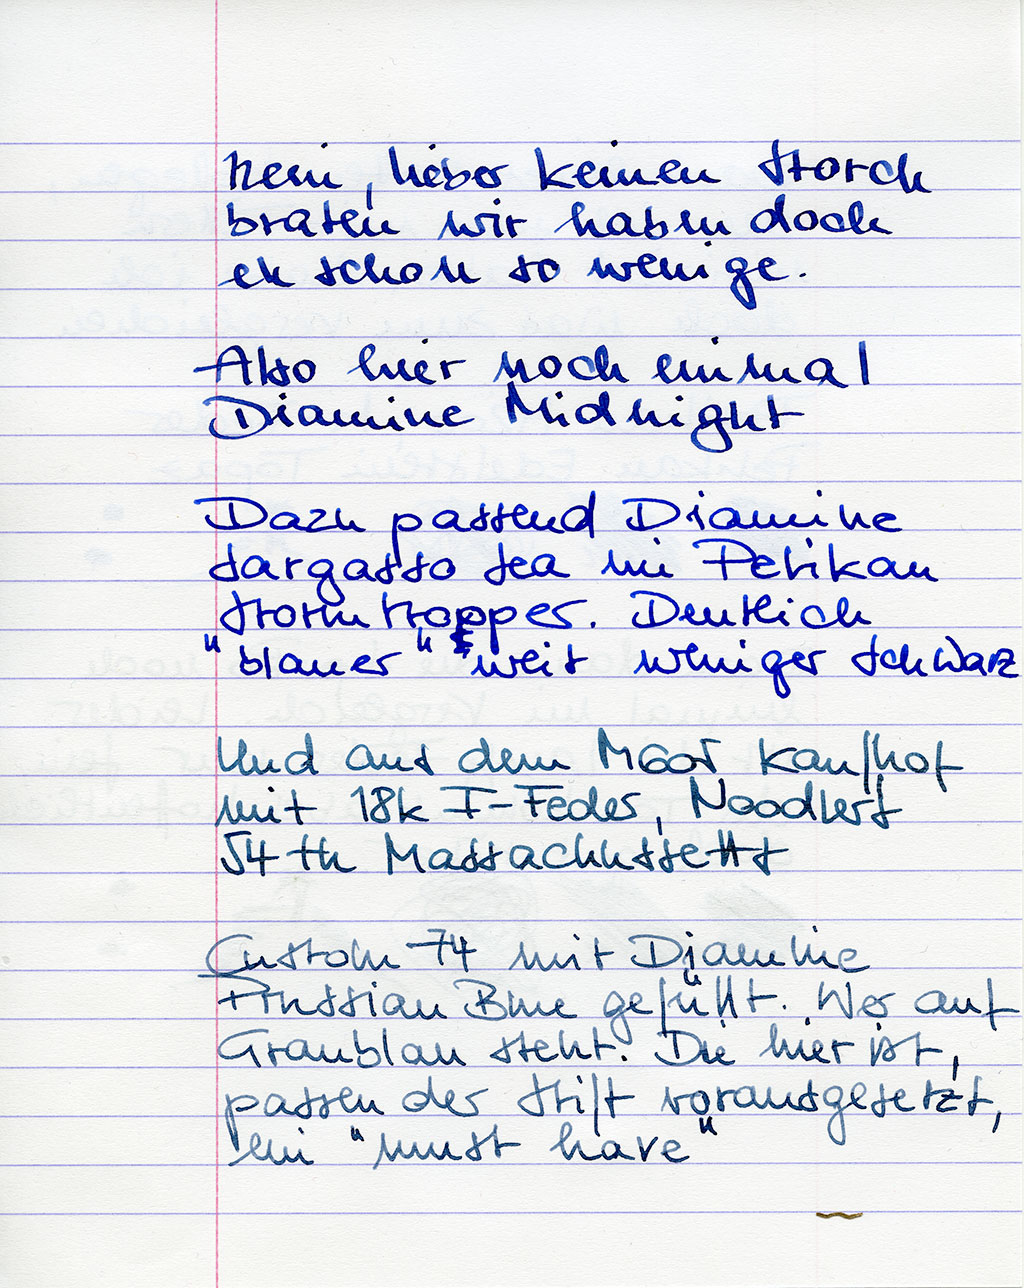 Nein, lieber keinen Storch
braten wir haben doch
eh schon so wenige.
Also hier noch einmal
Diamine Midnight
Dazu passend Diamine
Sargasso Sea im Pelikan
Stormtropper. Deutlich
"blauer" weit weniger schwarz
Und aus dem M605 Kaufhof
mit 18k I-Feder, Noodlers
54th Massachussetts
Custom 74 mit Diamine
Prussian Blue gefüllt. Wer auf
Graublau steht. Die hier ist,
passen der Stift vorausgesetzt,
ein "must have"